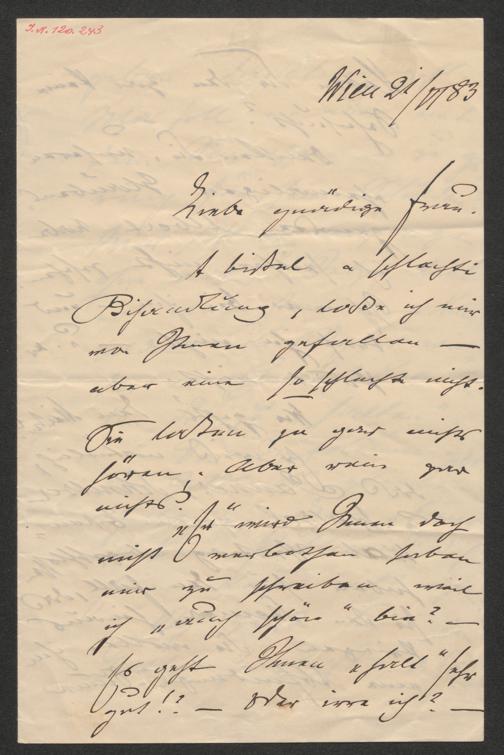 J.N. 120.243
Wien 21/VI 83
Liebe gnädige Frau.
A bissel a schlechti
Behandlung, lasse ich mir
von Ihnen gefallen —
aber eine so schlechte nicht.
Sie lassen ja gar nichts
hören. Aber rein gar
nichts?
„Er“ wird Ihnen doch
nicht verbothen haben
mir zu schreiben weil
ich „auch schön“ bin? —
Es geht Ihnen halt sehr
gut!? — Oder irre ich? —